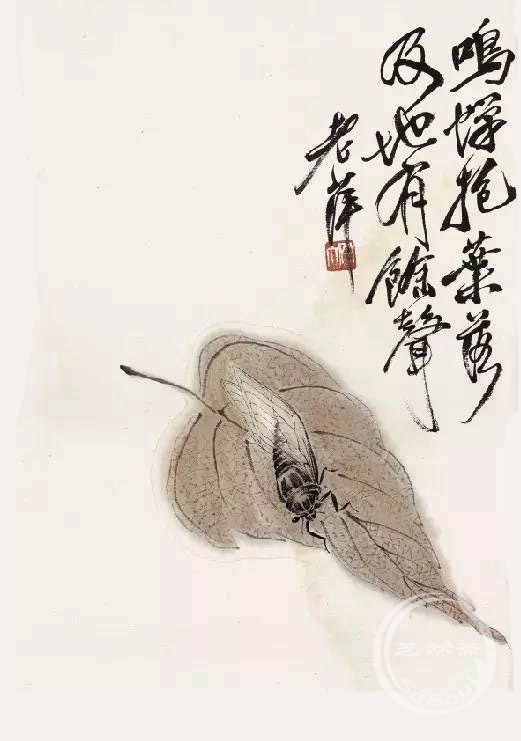 鳴蟬抱葉落
及地有餘聲
老萍
SuSoul